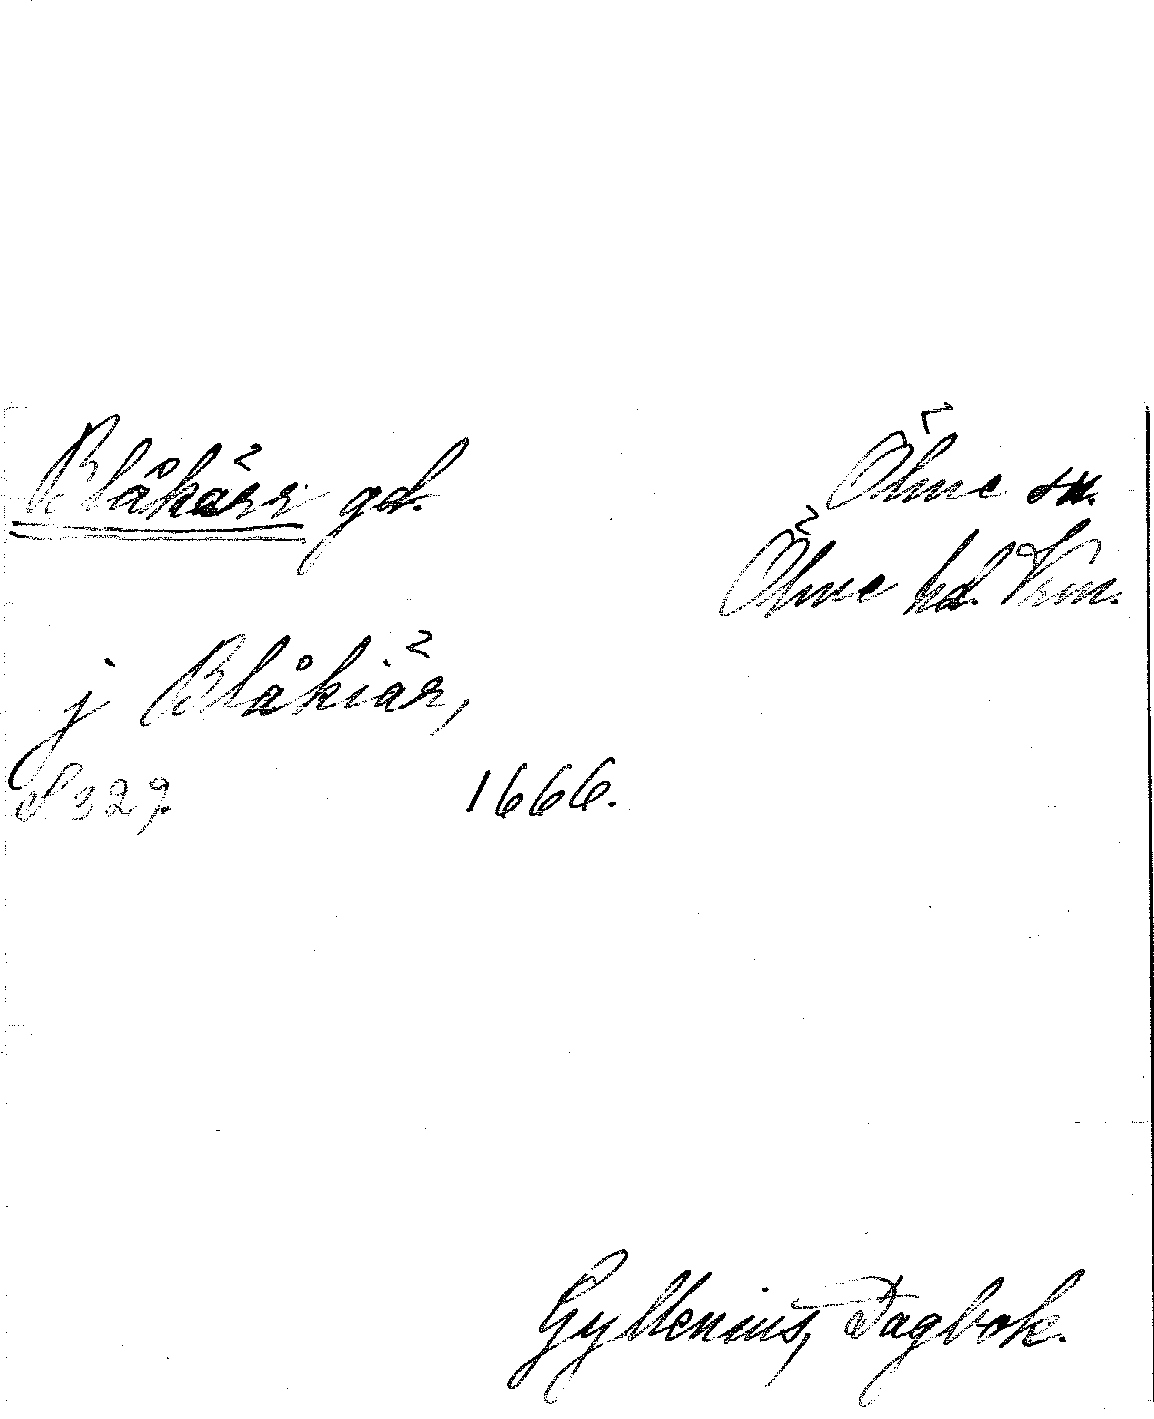 Blåkärr gd.
Ölme sn.
Ölme hd. Vrm.
j Blåkiär,
S 329. 1666.
Gyllenius, Dagbok.